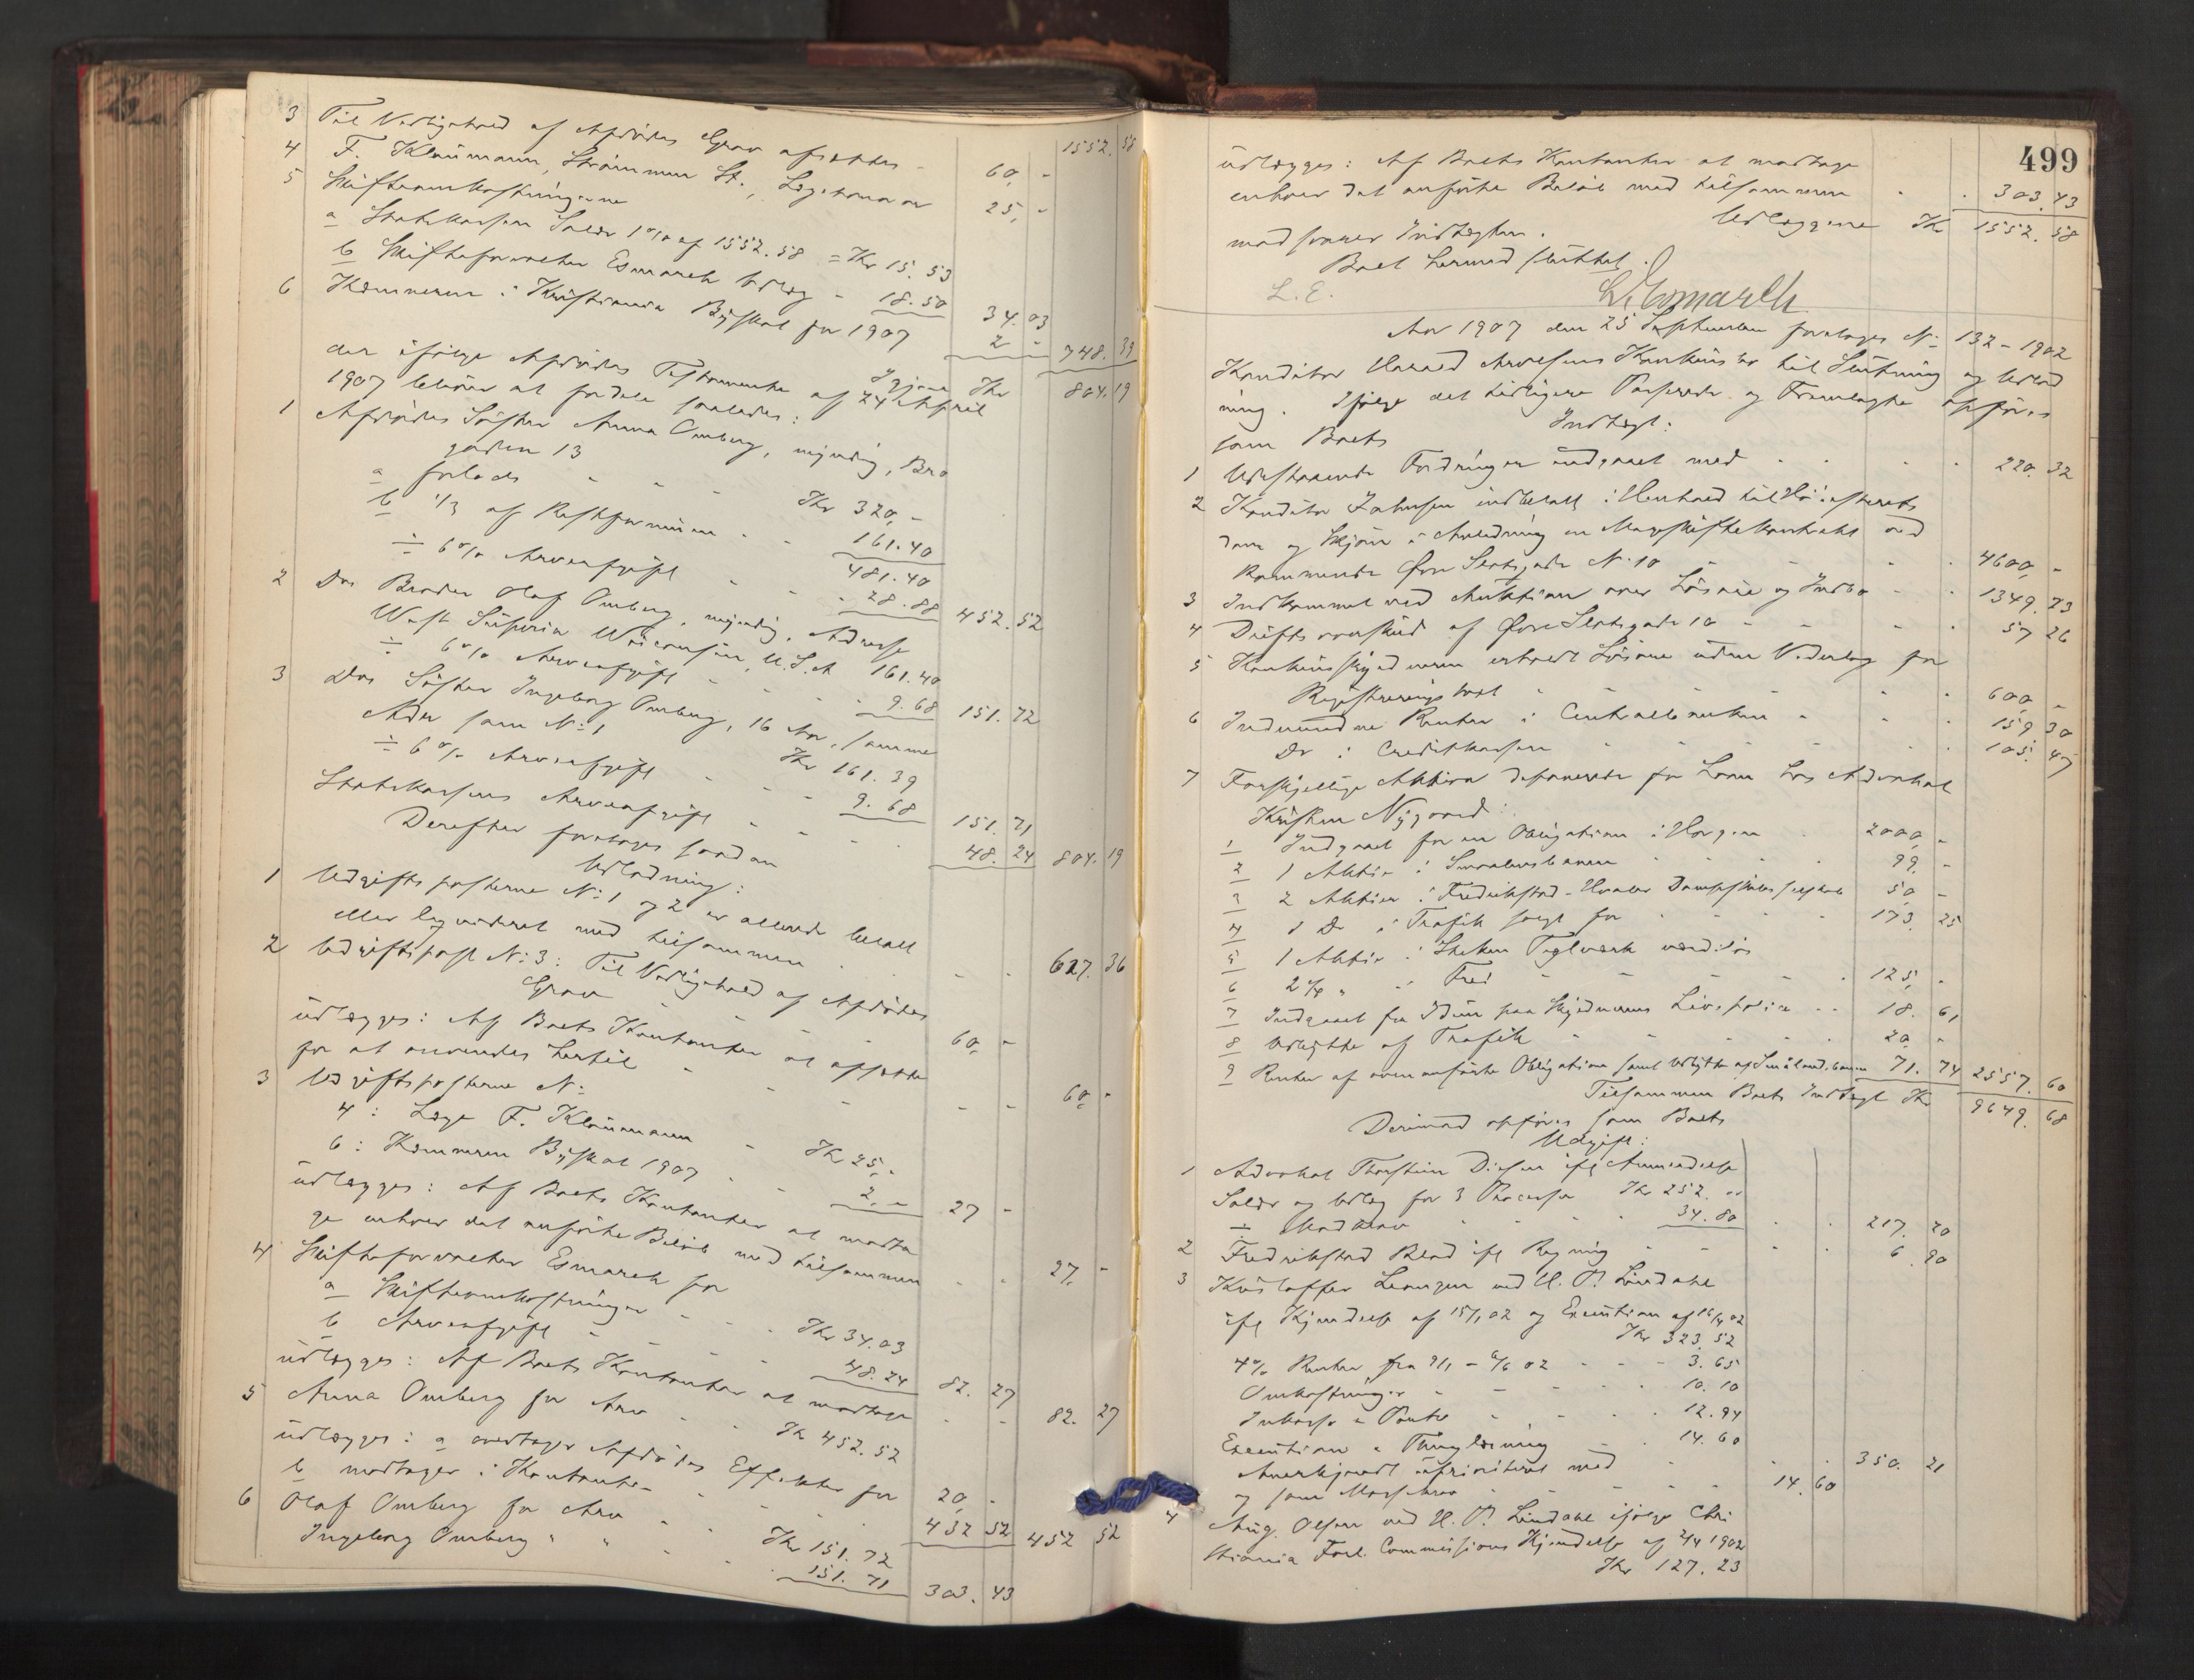 1552. 58
3 Til Vedligehold af Afdødes Grav afsættes - 60, -
4 F. Klaumann, Strømmen St., Lægehonorar 25, -
5 Skifteomkostningerne
a Statskassen Salær 1 % af 1552. 58 = Kr 15. 53
b Skifteforvalter Esmarch Udlæg - 18. 50 34. 03
6 Kæmneren i Kristiania Byskat for 1907 2 - 748. 39
Igjen Kr 804. 19
der ifølge Afdødes Testamente af 24 April
1907 bliver at fordele saaledes:
1 Afdødes Søster Anna Omberg, myndig, Bro
gaden 13
a forlods - - - Kr 320, -
b 1/3 af Restformuen - - 161. 40
481. 40
÷ 6 % Arveafgift - - - 28. 88 452. 52
2 Das Broder Olaf Omberg, myndig, Adresse
West Superior Wisconsin, U. S. A 161. 40
÷ 6 % Arveafgift - - - 9. 68 151. 72
3 Das Søster Ingeborg Omberg, 16 Aar, samme
Adr som No 1 Kr 161. 39
÷ 6 % Arveafgift - - - 9. 68 151. 71
Statskassens Arveafgift - - - 48. 24 804. 19
Derefter foretages saadan
Udlodning:
1 Udgiftsposterne No 1 og 2 er allerede betalt
eller likvideret med tilsammen - - - 627. 36
2 Udgiftspost No 3: Til Vedligehold af Afdødes
Grav 60, -
udlægges: Af Boets Kontanter at afsætte
for at anvendes hertil - - - 60, -
3 Udgiftsposterne No
4: Læge F. Klaumann - Kr 25, -
6: Kæmneren Byskat 1907 - - 2, - 27 -
udlægges: Af Boets Kontanter at modta
ge enhver det anførte Beløb med tilsammen - - 27, -
4 Skifteforvalter Esmarch for
a Skifteomkostninger - - - Kr 34. 03
b Arveafgift - - - 48. 24 82. 27
udlægges: Af Boets Kontanter at modtage - - 82. 27
5 Anna Omberg for Arv - - Kr 452. 52
udlægges: a overtager Afdødes Effekter for 20, -
b modtager i Kontanter - - 432 52 452 52
6 Olaf Omberg for Arv - - Kr 151. 72
Ingeborg Omberg " " - - 151. 71 303. 43
499
udlægges: Af Boets Kontanter at modtage
enhver det anførte Beløb med tilsammen - - 303. 43
Udlæggene Kr 1552. 58
modsvarer Indtægten.
Boet hermed sluttet.
L. E. L. Esmarch
Aar 1907 den 25 September foretoges No 132 - 1902
Konditor Harald Arvesens Konkursbo til Slutning og Udlod
ning. Ifølge det tidligere Passerede og Fremlagte opføres
som Boets Indtægt:
1 Udestaaende Fordringer indgaaet med - - - 220. 32
2 Konditor Johnsen indbetalt i Henhold til Høiesterets
dom og Skjøn i Anledning en Mageskiftekontrakt ved
kommende Øvre Slotsgade No 10 - - - 4600, -
3 Indkommet ved Auktion over Løsøre og Indbo - - 1349. 73
4 Driftsoverskud af Øvre Slotsgade 10 - - - 57 26
5 Konkursskyldneren erholdt Løsøre uden Vederlag for
Registreringstaxt - - - 600, -
6 Indvundne Renter i Centralbanken - - 159 30
Do i Creditkassen - - - 105. 47
7 Forskjellige Aktiva deponerede for Laan hos Advokat
Kristen Nygaard:
1 Indgaaet for en Obligation i Horgen - 2000, -
2 1 Aktie i Smaalensbanen - - 99, -
3 2 Aktier i Fredrikstad - Hvaler Dampskibsselskab 50, -
4 1 Do i Trafik solgt for - - - 173. 25
5 1 Aktie i Teglværk værdiløs
6 - - - 125, -
7 Indgaaet fra Idun paa Skyldnerens Livspolice - - 18. 61
8 Udbytte af Trafik - - - 20, -
9 Renter af ovenanførte Obligation samt Udbytte af Smålensbanen 71. 74 2557. 60
Tilsammen Boets Indtægt Kr 9649. 68
Derimod opføres som Boets
Udgift:
1 Advokat Thorstein Diesen ifl Anmeldelse
Salær og Udlæg for 3 Processer Kr 252. -
÷ Modkrav - - - 34. 80 - - 217. 20
2 Fredrikstad Blad ifl Regning - - - 6. 90
3 Kristoffer Leangen ved H. P. Lindahl
ifl Kjendelse af 15/1 02 og Execution af 16/4 02
Kr 323. 52
4 % Renter fra 9/1 - 6/6 02 - - 3. 65
Omkostninger - - - 10. 10
Inkasso & Porto - - - 12. 94
Execution & Thinglæsning - - 14. 60
Anerkjendt uprioriteret med - - - 350. 21
og som Massekrav - - - 14. 60
4 Aug. Olsen ved H. P. Lindahl ifølge Chri
stiania Forl. Commissions Kjendelse af 2/4 1902
Kr 127. 23